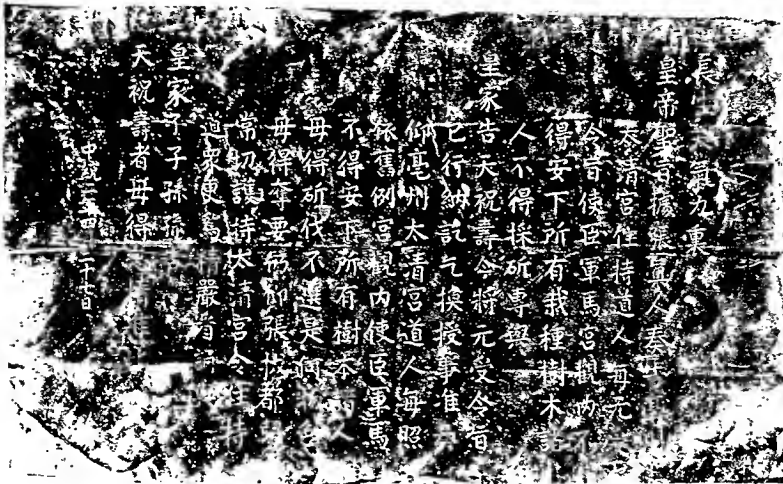 長 氣力裏
皇帝聖旨據張真人奏
太清宮住持道人每元
令旨使臣軍馬宮觀內
得安下所有栽種樹木諸
人不得採斫專與
皇家告天祝壽今將元受令旨
已行納訖乞換授事准
仰亳州太清宮道人每照
依舊例宮觀內使臣軍馬
不得安下所有樹木
毋得斫伐不選是何
毋得奪要仍仰張拔都
常切護持太清宮令住持
道衆更 精嚴
皇家子子孫孫
天祝壽者毋得
中統二年四 二十七日